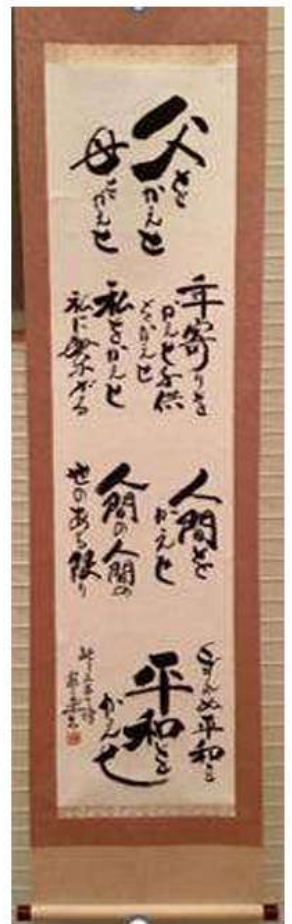 父を
かえせ
母をかえせ
年寄りを
かえせ子供
をかえせ
私をかえせ
私に繋がる
人間を
かえせ
人間の人間の
世のある限り
くずれぬ平和を
平和を
かえせ
峠三吉の詩